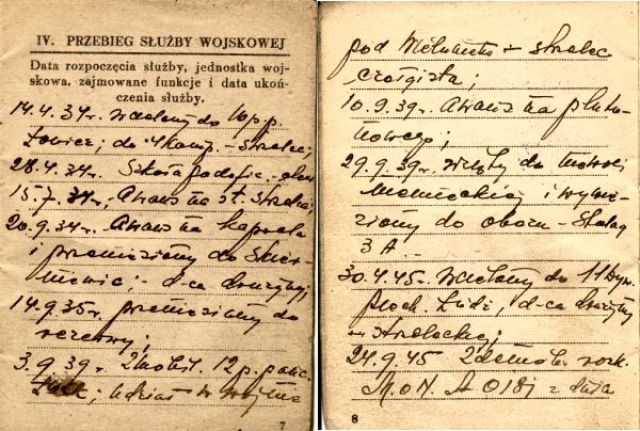 IV. PRZEBIEG SŁUŻBY WOJSKOWEJ
Data rozpoczęcia służby, jednostka woj-
skowa, zajmowane funkcje i data ukoń-
czenia służby.
14.4.34r. wcielony do 10 p.p.
Łowicz; do 4 komp. - strzelec;
28.4.34r. Szkoła podofic.
15.7.34r., Awans na st. strzelca;
20.9.34r. Awans na kaprala
i przeniesiony do Skier-
niewic; - d-ca drużyny;
14.9.35r. przeniesiony do
rezerwy;
3.9.39r. Zmobil. 12 p. panc.
udział w wojnie
7
pod - strzelec
czołgista;
10.9.39r. Awans na pluto-
nowego;
29.9.39r. wzięty do niewoli
niemieckiej i wywie-
ziony do obozu - Stalag
3 A
30.4.45r. Wcielony do 11 dyw.
piech. Łódź, d-ca drużyny
strzeleckiej;
24.9.45 Zdemob. rozk.
M.O.N. z dnia
8